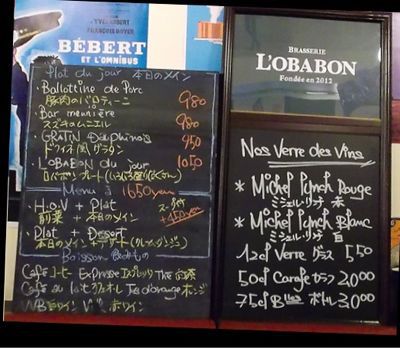 YVES ROBERT
FRANÇOIS BOYER
BÉBERT
ET L'OMNIBUS
Plat du jour 本日のメイン
・Ballottine de Porc 980
豚肉のバロティーヌ
・Bar meunière 980
スズキのムニエル
・GRATIN Dauphinois 950
ドフィノワ風グラタン
・L'OBABON du jour 1050
ロバボンプレート
Menu à 1650yen
・H.O.V + Plat
前菜 + 本日のメイン
+450yen
・Plat + Dessert
本日のメイン + デザート
Boisson 飲みもの
Café コーヒー Expresse エスプレッソ Thé 紅茶
Café au lait カフェオレ Jus d'orange
BRASSERIE
L'OBABON
Fondée en 2012
Nos Verre des Vins
* Michel Lynch Rouge
ミシェル・リンチ 赤
* Michel Lynch Blanc
ミシェル・リンチ 白
12cl Verre グラス 550
50cl Carafe カラフ 2,000
75cl Blles ボトル 3,000